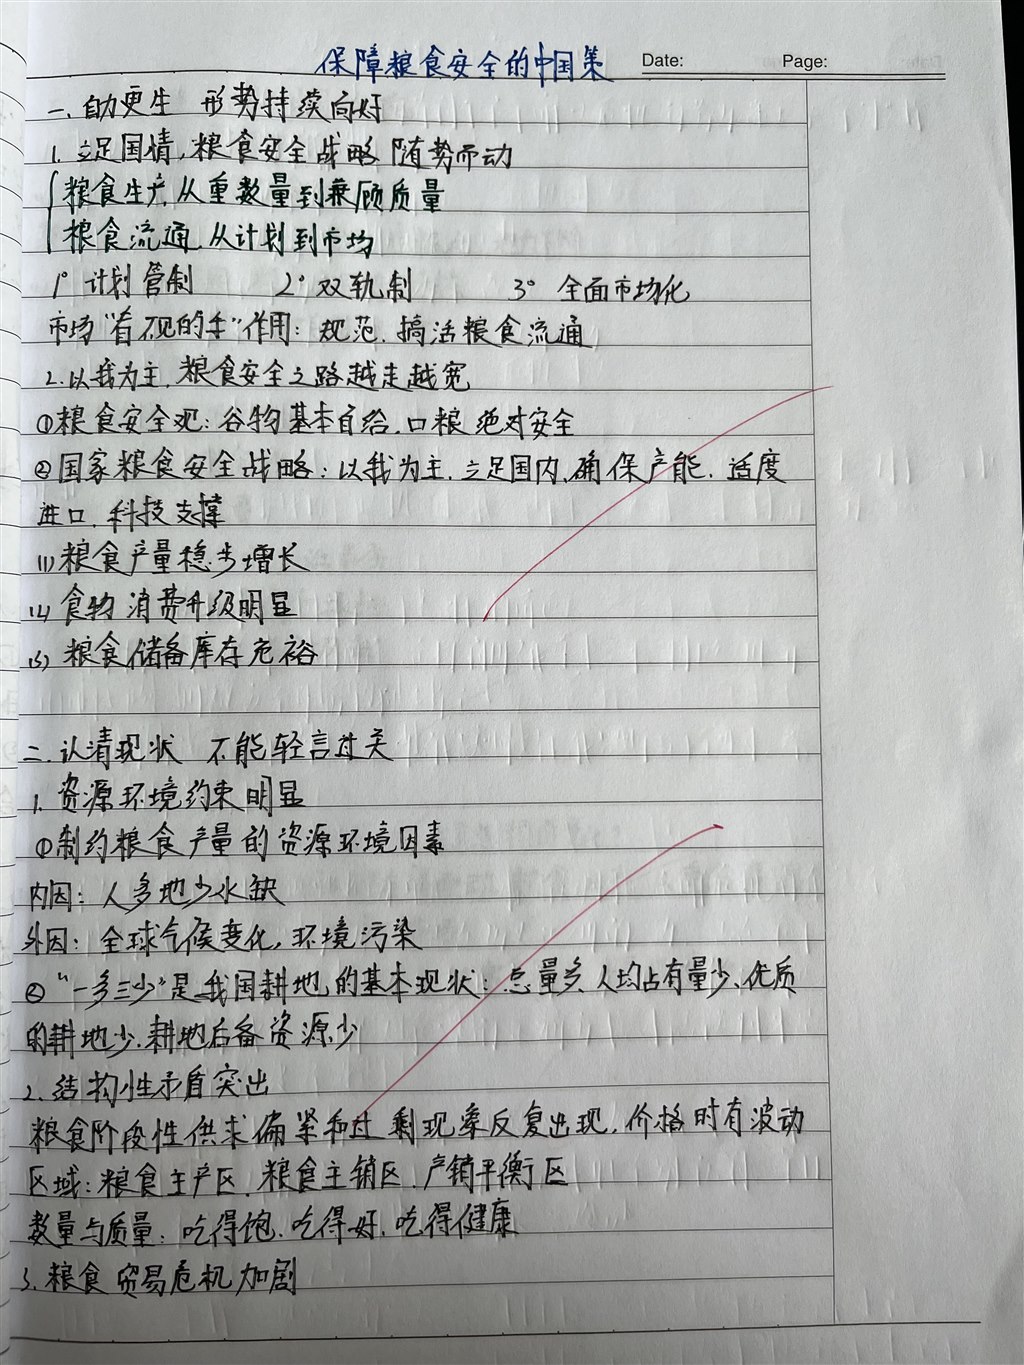 保障粮食安全的中国策
Date: Page:
一、自力更生 形势持续向好
1. 立足国情,粮食安全战略随势而动
粮食生产,从重数量到兼顾质量
粮食流通,从计划到市场
1° 计划管制 2° 双轨制 3° 全面市场化
市场“看不见的手”作用:规范、搞活粮食流通
2. 以我为主,粮食安全之路越走越宽
①粮食安全观:谷物基本自给、口粮绝对安全
②国家粮食安全战略:以我为主、立足国内、确保产能、适度
进口、科技支撑
(1)粮食产量稳步增长
(2)食物消费升级明显
(3)粮食储备库存充裕
二、认清现状 不能轻言过关
1. 资源环境约束明显
①制约粮食产量的资源环境因素
内因:人多地少水缺
外因:全球气候变化,环境污染
②“一多三少”是我国耕地的基本现状:总量多、人均占有量少、优质
的耕地少、耕地后备资源少
2. 结构性矛盾突出
粮食阶段性供求偏紧和过剩现象反复出现,价格时有波动
区域:粮食主产区、粮食主销区、产销平衡区
数量与质量:吃得饱、吃得好、吃得健康
3. 粮食贸易危机加剧